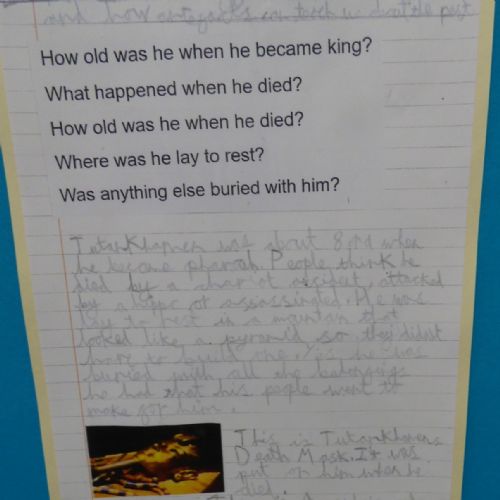 and how artefacts can teach us about the past
How old was he when he became king?
What happened when he died?
How old was he when he died?
Where was he lay to rest?
Was anything else buried with him?
Tutankhamen was about 8 or 9 when
he became pharoah. People think he
died by a chariot accident, attacked
by a or assassinated. He was
lay to rest in a mountain that
looked like a pyramid so they didnt
have to build one. Yes he was
buried with all the belongings
he had that his people went to
make for him.
This is Tutankhamens
Death Mask. It was
put on him when he
died.